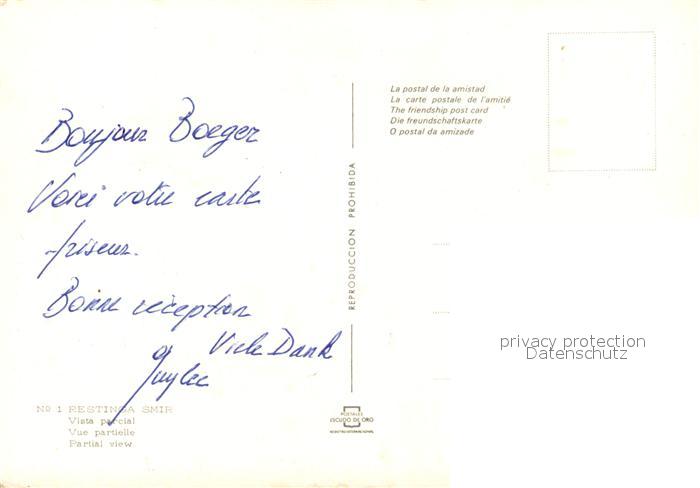 La postal de la amistad
La carte postale de l'amitié
The friendship post card
Die freundschaftskarte
O postal da amizade
Bonjour Boeger
Voici votre carte
friseur.
Bonne réception
Viele Dank
REPRODUCCION PROHIBIDA
privacy protection
Datenschutz
Nº 1 RESTINGA SMIR
Vista parcial
Vue partielle
Partial view
POSTALES
ESCUDO DE ORO